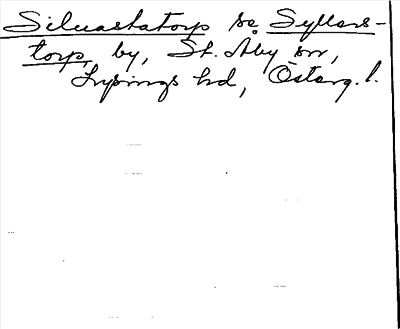 Silvastatorp se Syllers-
torp, by, St. Åby sn,
Lysings hd, Österg. l.